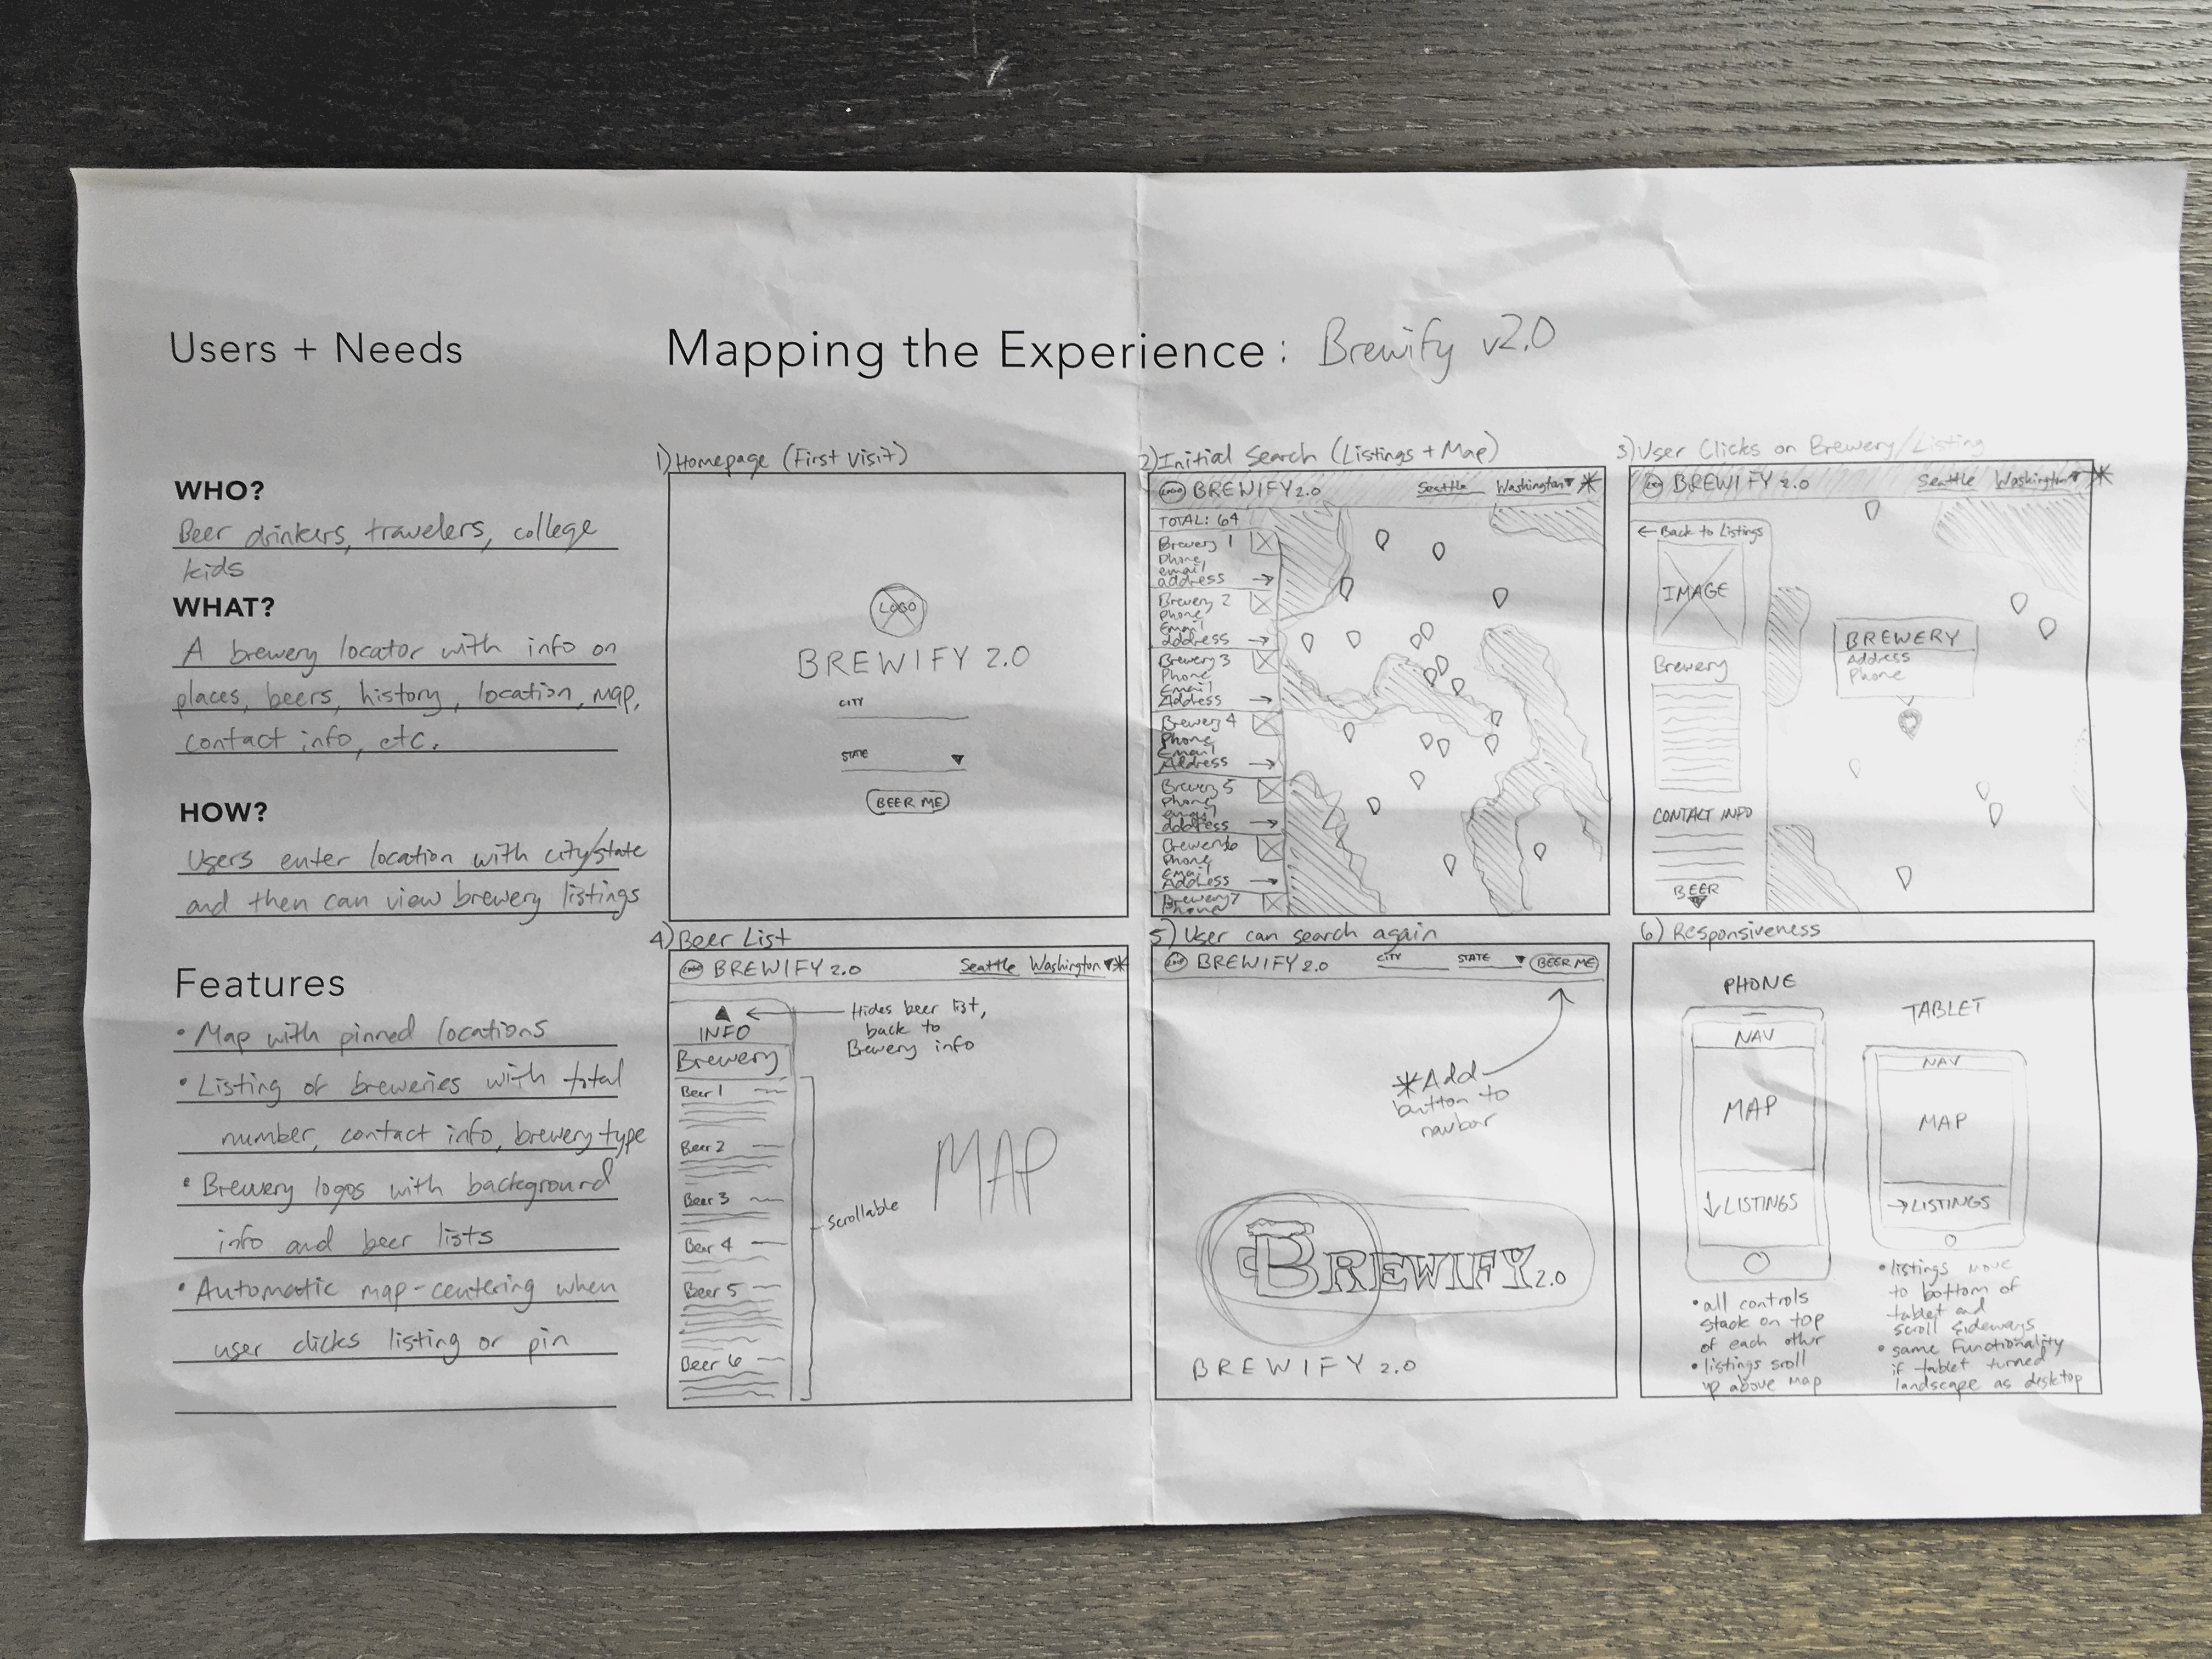 Users + Needs
Mapping the Experience: Brewify v2.0
WHO?
Beer drinkers, travelers, college
kids
WHAT?
A brewery locator with info on
places, beers, history, location, map,
contact info, etc.
HOW?
Users enter location with city/state
and then can view brewery listings
Features
• Map with pinned locations
• Listing of breweries with total
number, contact info, brewery type
• Brewery logos with background
info and beer lists
• Automatic map-centering when
user clicks listing or pin
1) Homepage (First Visit)
LOGO
BREWIFY 2.0
CITY
STATE
BEER ME
2) Initial Search (Listings + Map)
LOGO BREWIFY 2.0 Seattle Washington *
TOTAL: 64
Brewery 1
Phone
email
address
Brewery 2
Phone
Email
address
Brewery 3
Phone
Email
Address
Brewery 4
Phone
Email
Address
Brewery 5
Phone
email
address
Brewery 6
Phone
email
Address
Brewery 7
Phone
3) User Clicks on Brewery/Listing
BREWIFY 2.0 Seattle Washington *
← Back to Listings
IMAGE
Brewery
CONTACT INFO
BEER
BREWERY
Address
Phone
4) Beer List
LOGO BREWIFY 2.0 Seattle Washington *
INFO
Hides beer list,
back to
Brewery info
Brewery
Beer 1
Beer 2
Beer 3
Beer 4
Beer 5
Beer 6
Scrollable
MAP
5) User can search again
LOGO BREWIFY 2.0 CITY STATE BEER ME
* Add
button to
navbar
BREWIFY 2.0
BREWIFY 2.0
6) Responsiveness
PHONE
NAV
MAP
↓ LISTINGS
• all controls
stack on top
of each other
• listings sroll
up above map
TABLET
NAV
MAP
→ LISTINGS
• listings move
to bottom of
tablet and
scroll sideways
• same functionality
if tablet turned
landscape as desktop